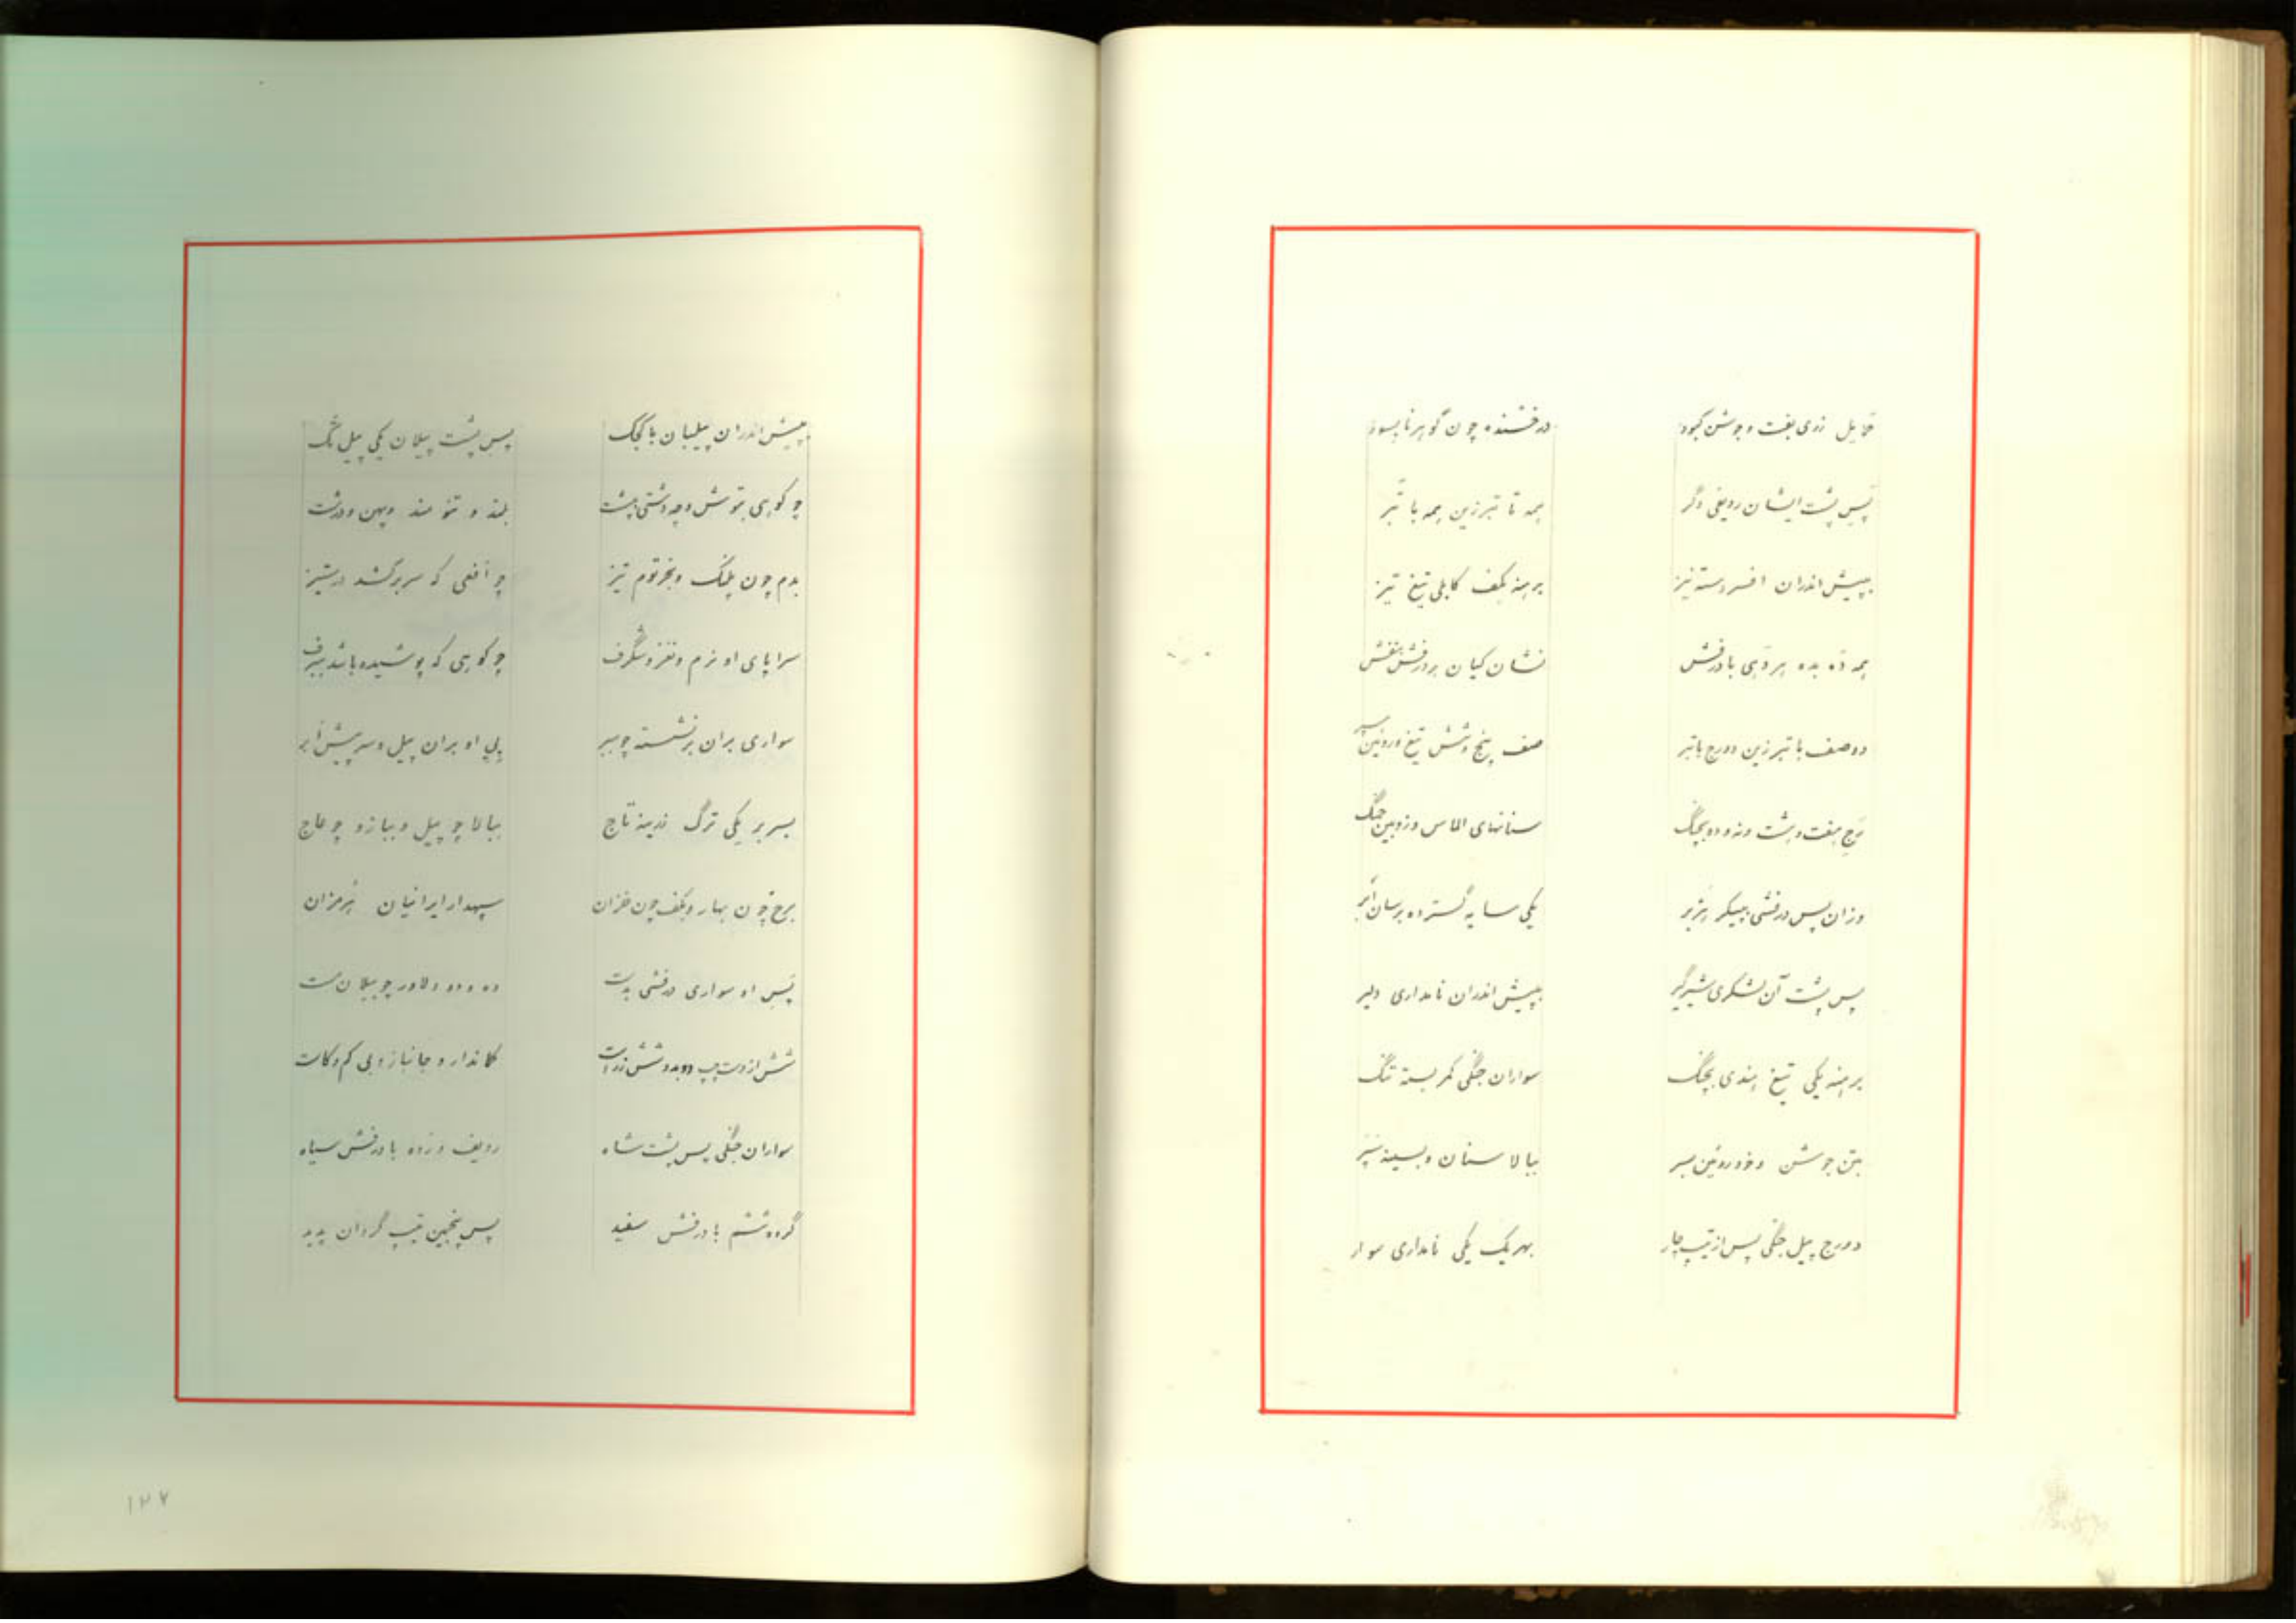 حمایل زری بفت و جوشن کبود درخشنده چون گوهر نابسود
پس پشت ایشان ردیفی دگر همه تا تبرزین همه با تبر
بپیش اندران افسر دسته نیز برهنه بکف کابلی تیغ تیز
همه ده بده هر دهی با درفش نشان کیان بر درفش بنفش
دو صف با تبرزین دو رج با تبر صف پنج و شش تیغ و روئین سپر
رج هفت و هشت و نه و ده بچنگ سنانهای الماس و زوبین جنگ
وزان پس درفشی بپیکر هژبر یکی سایه گسترده بر سان ابر
پس پشت آن لشکری شیرگیر بپیش اندران نامداری دلیر
برهنه یکی تیغ هندی بچنگ سواران جنگی کمر بسته تنگ
بتن جوشن و خود روئین بسر ببالا سنان و بسینه سپر
دو رج پیل جنگی پس از تیپ چار بهر یک یکی نامداری سوار
بپیش اندران پیلبان با کجک پس پشت پیلان یکی پیل
چو کوهی بتوش و چه دشتی بپشت بلند و تنومند و پهن و درشت
بدم چون پلنگ و بخرتوم تیز چو افعی که سر برکشد در ستیز
سراپای او نرم و نغز و شگرف چو کوهی که پوشیده باشد ببرف
سواری بران برنشسته چو ببر پی او بران پیل و سر پیش ابر
بسر بر یکی ترگ زرینه تاج ببالا چو پیل و ببازو چو عاج
برخ چون بهار و بکف چون خزان سپهدار ایرانیان هرمزان
پس او سواری درفشی بدست ده و دو دلاور چو پیلان مست
شش از دست چپ دو بدو شش ز راست کماندار و جانباز و بی کم و کاست
سواران جنگی پس پشت شاه ردیف و زده با درفش سیاه
گروه ششم با درفش سفید پس پنجمین تیپ گردان پدید
۱۲۷